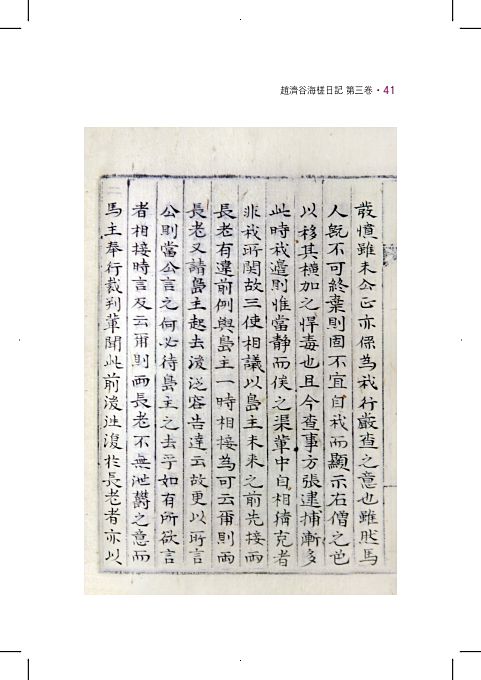 趙濟谷海槎日記 第三卷 · 41
憤雖未公正亦係爲我行嚴查之意也雖然馬
人旣不可終棄則固不宜自我而顯示右僧之色
以移其橫加之悍毒也且今查事方張逮捕漸多
此時我邊則惟當靜而俟之渠輩中自相猜克者
非我所関故三使相議以島主未来之前先接兩
長老有違前例與島主一時相接爲可云爾則兩
長老又請島主起去後從容告達云故更以所言
公則當公言之何必待島主之去乎如有所欲言
者相接時言及云爾則兩長老不無泄欝之意而
馬主奉行裁判輩聞此前後徃復於長老者亦以